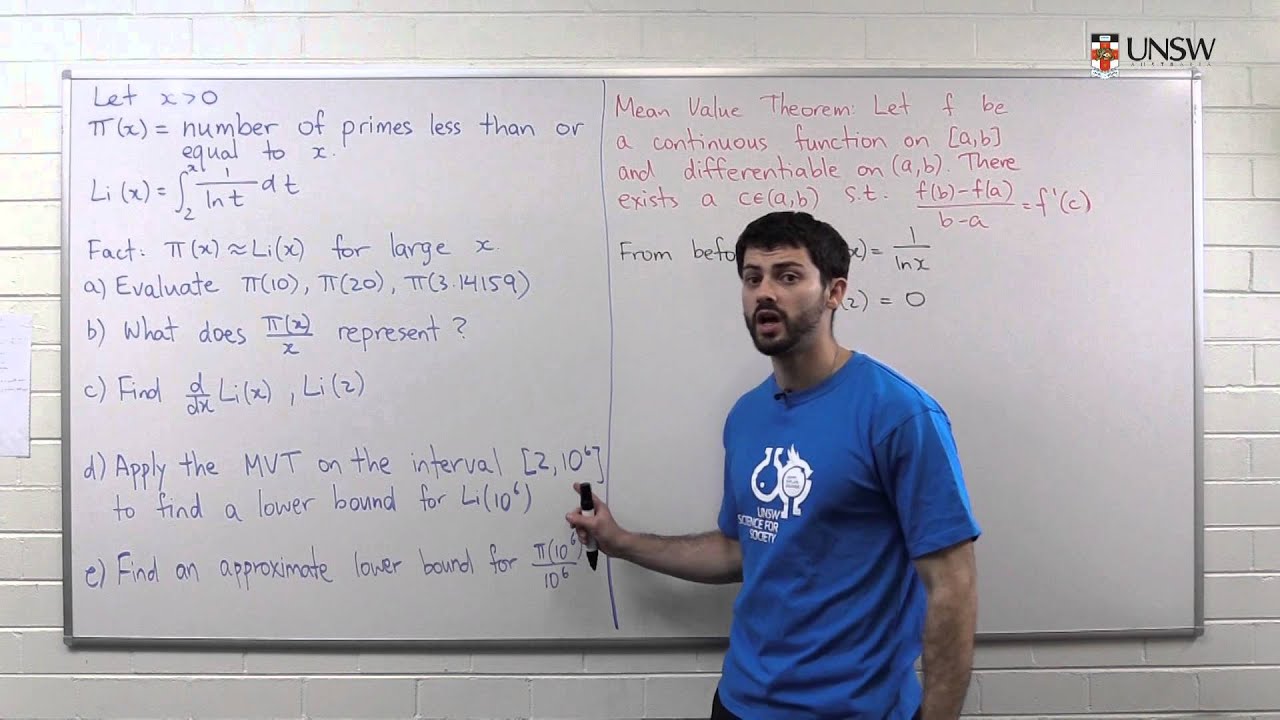 Let x>0
π(x) = number of primes less than or
equal to x.
Li(x) = ∫₂ˣ 1/ln t dt
Fact: π(x) ≈ Li(x) for large x.
a) Evaluate π(10), π(20), π(3.14159)
b) What does π(x)/x represent?
c) Find d/dx Li(x), Li(2)
d) Apply the MVT on the interval [2,10⁶]
to find a lower bound for Li(10⁶)
e) Find an approximate lower bound for π(10⁶)/10⁶
Mean Value Theorem: Let f be
a continuous function on [a,b]
and differentiable on (a,b). There
exists a c∈(a,b) s.t. f(b)-f(a)/b-a = f'(c)
From x) = 1/ln x
(2) = 0
UNSW
AUSTRALIA
UNSW
SCIENCE FOR
SOCIETY